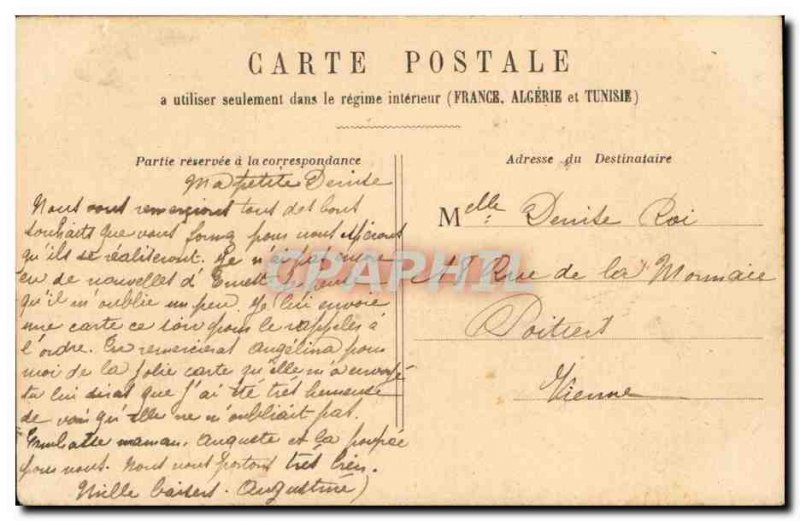 CARTE POSTALE
a utiliser seulement dans le régime intérieur (FRANCE, ALGÉRIE et TUNISIE)
Partie réservée à la correspondance
Adresse du Destinataire
Ma petite Denise
Nous vous remercions tous des bons
souhaits que vous formez pour nous espérons
qu'ils se réaliseront. Je n'ai pas encore
eu de nouvelles d'Ernest
qu'il m'oublie un peu je lui envoie
une carte ce soir pour le rappeler à
l'ordre. Tu remercieras Angélina pour
moi de la jolie carte qu'elle m'a envoyé
tu lui diras que j'ai été très heureuse
de voir qu'elle ne m'oubliait pas.
Embrasse maman, Auguste et la poupée
pour nous. Nous nous portons très bien.
Mille baisers. Augustine
Melle: Denise Roi
18 Rue de la Monnaie
Poitiers
Vienne
CPAPHIL